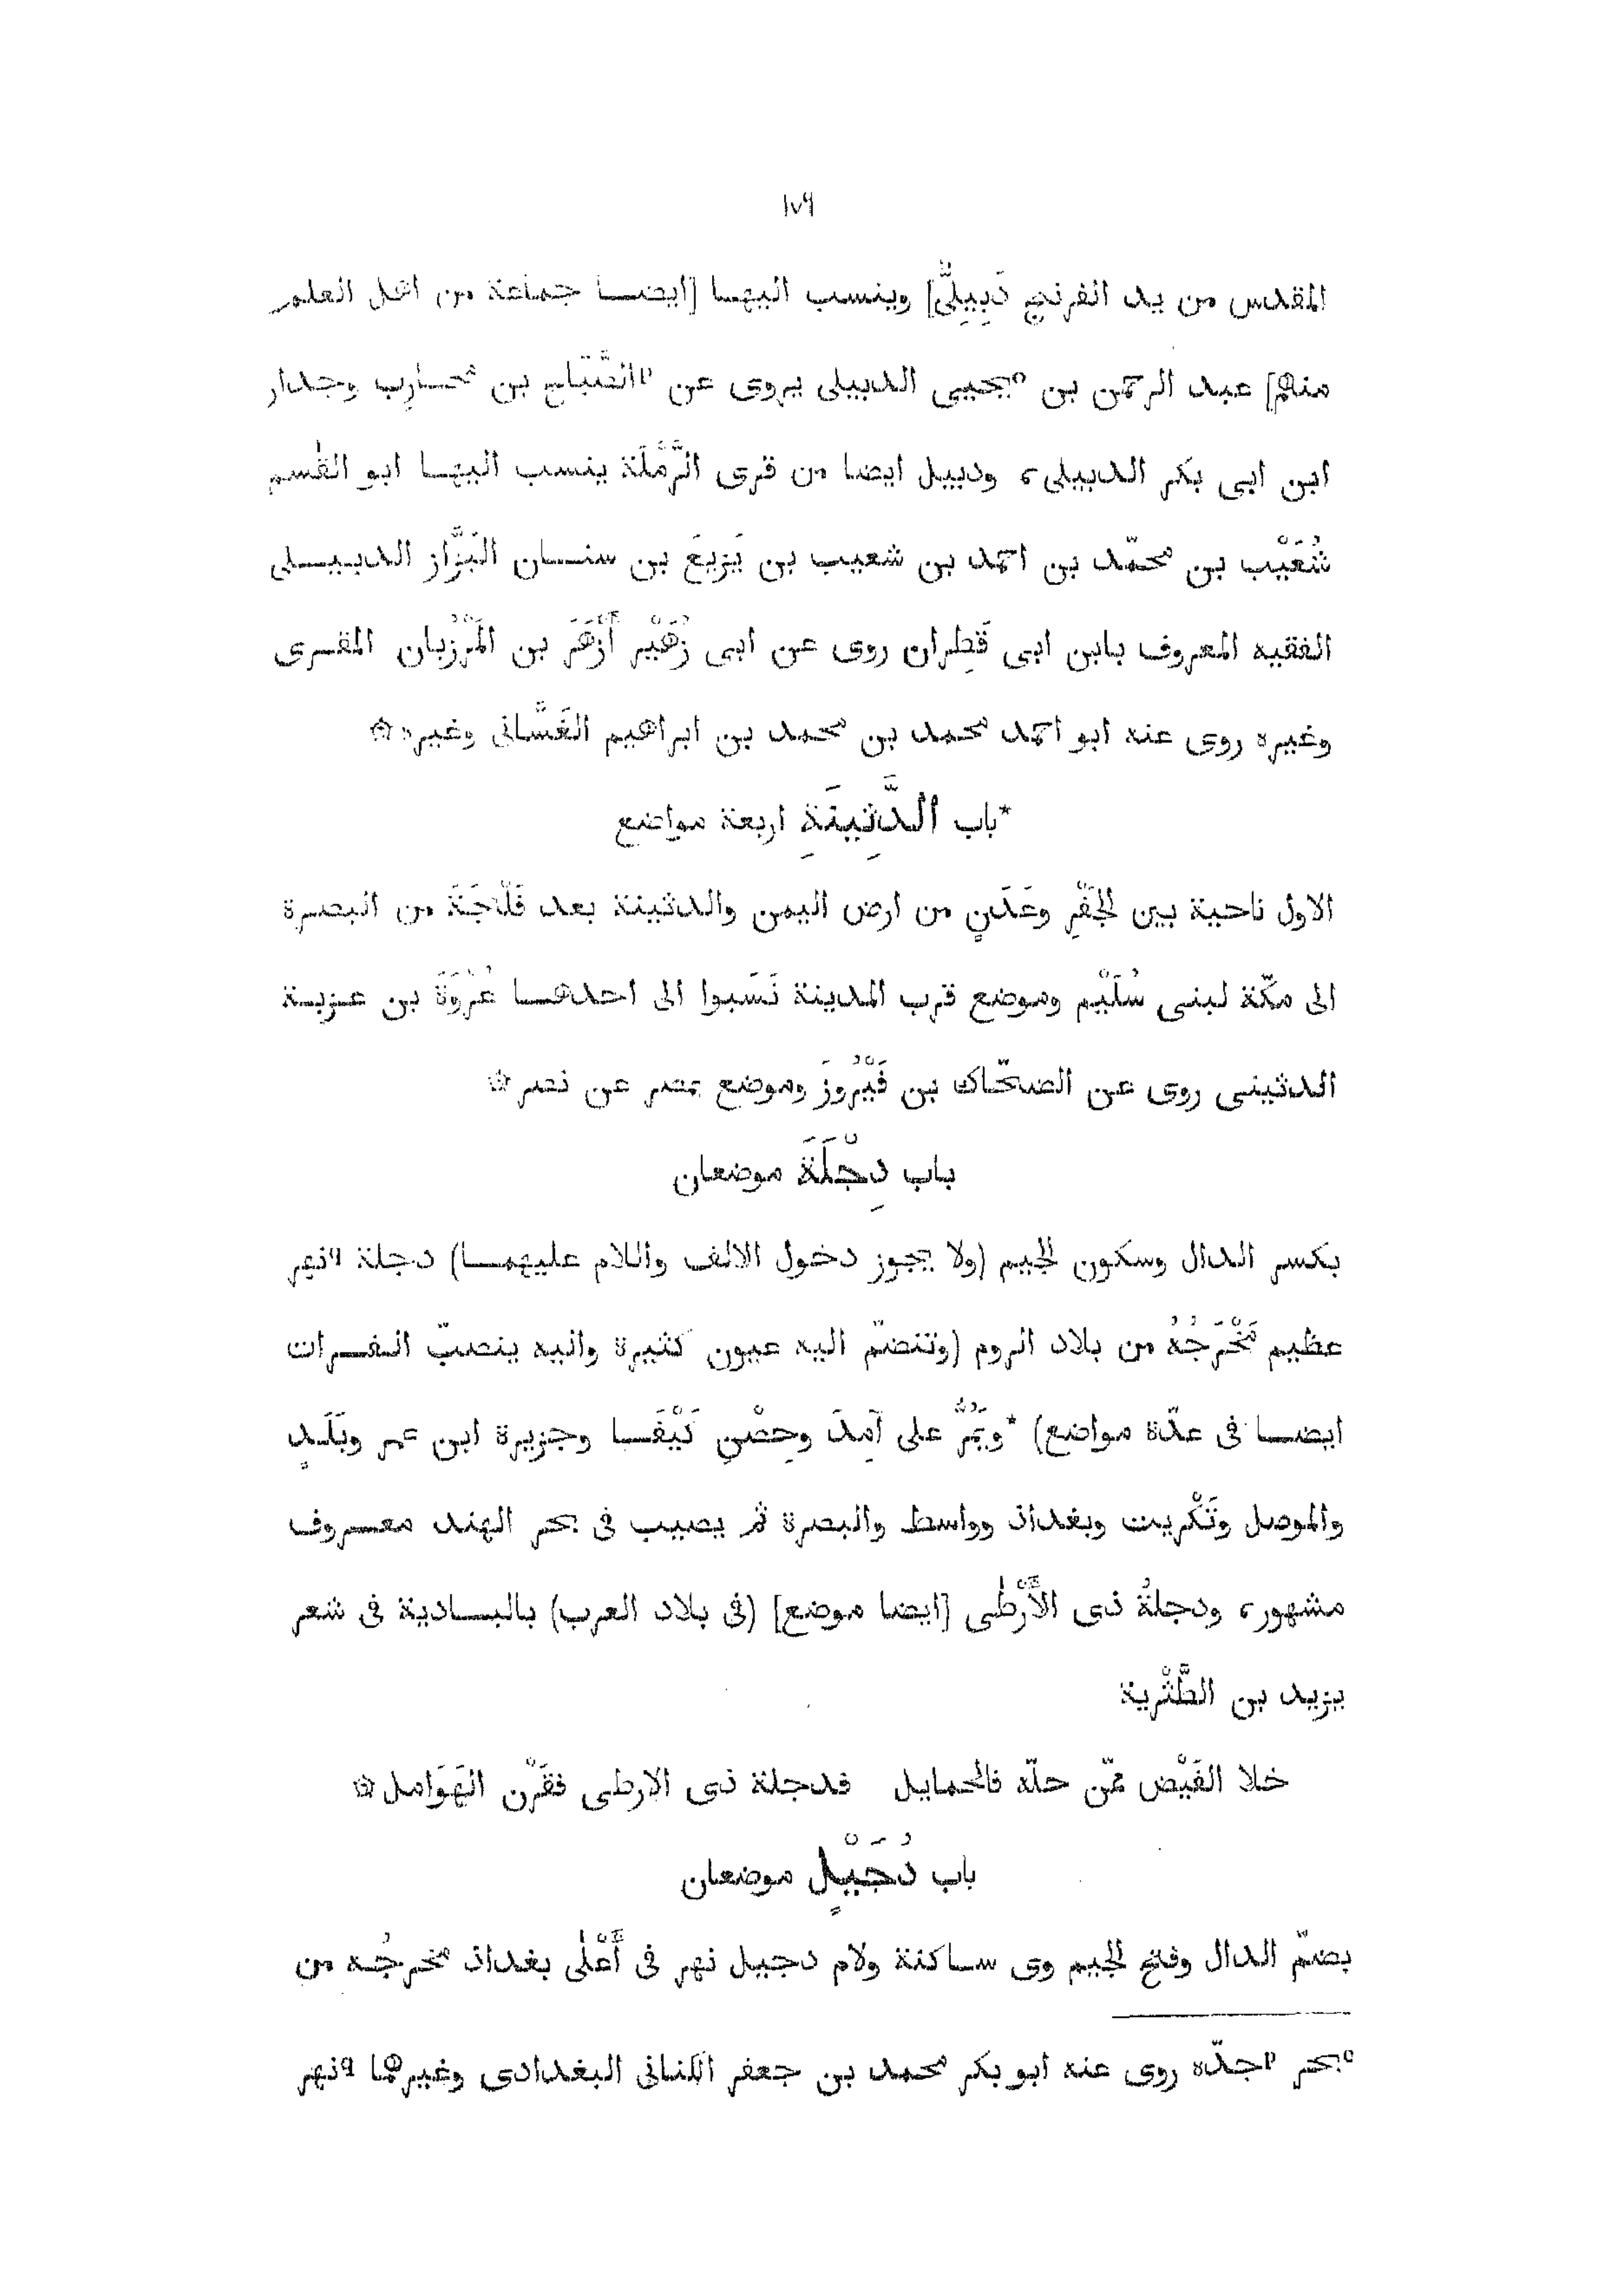 ١٧٩
المقدس من يد الفرنج دَبِيلِىٌّ] وينسب اليها [ايضا جماعة من اهل العلم
منهم] عبد الرحمن بن °يحيى الدبيلى يروى عن ᵖالصَّبَّاح بن محارِب وجدار
ابن ابى بكر الدبيلى، ودبيل ايضا من قرى الرَّمْلَة ينسب اليها ابو القٰسم
شُعَيْب بن محمّد بن احمد بن شعيب بن يَزيعَ بن سنان البَزَّاز الدبيلى
الفقيه المعروف بابن ابى قَطِران روى عن ابى زُهَيْر أَزْهَرَ بن المَرْزُبان المقرى
وغيره روى عنه ابو احمد محمد بن محمد بن ابراهيم الغَسَّانى وغيره ۞
*باب الدَّثِينَةِ اربعة مواضع
الاول ناحية بين الجَفْرِ وعَدَنٍ من ارض اليمن والدثينة بعد فَلْجَةَ من البصرة
الى مكّة لبنى سُلَيْم وموضع قرب المدينة نَسَبوا الى احدها عُرْوَةَ بن عزية
الدثينى روى عن الضحّاك بن فَيْرُوزَ وموضع بمصر عن نصر ۞
باب دِجْلَةَ موضعان
بكسر الدال وسكون الجيم (ولا يجوز دخول الالف واللام عليهما) دجلة ᑫنهر
عظيم مَخْرَجُهُ من بلاد الروم (وتنضمّ اليه عيون كثيرة واليه ينصبّ الفرات
ايضا فى عدّة مواضع) *ويَمُرُّ على آمِدَ وحِصْنِ كَيْفَا وجزيرة ابن عمر وبَلَدٍ
والموصل وتَكْريت وبغداد وواسط والبصرة ثم يصيب فى بحر الهند معروف
مشهور، ودجلةُ ذى الأَرْطٰى [ايضا موضع] (فى بلاد العرب) بالبادية فى شعر
يزيد بن الطَّثْرية
خلا الفَيْض ممّن حلّه فالحمايل فدجلة ذى الارطى فقَرْن الهَوَامل ۞
باب دُجَيْلٍ موضعان
بضمّ الدال وفتح الجيم وى ساكنة ولام دجيل نهر فى أَعْلٰى بغداد مخرجُه من
°بحر ᵖجدّه روى عنه ابو بكر محمد بن جعفر الكنانى البغدادى وغيرهما ᑫنهر